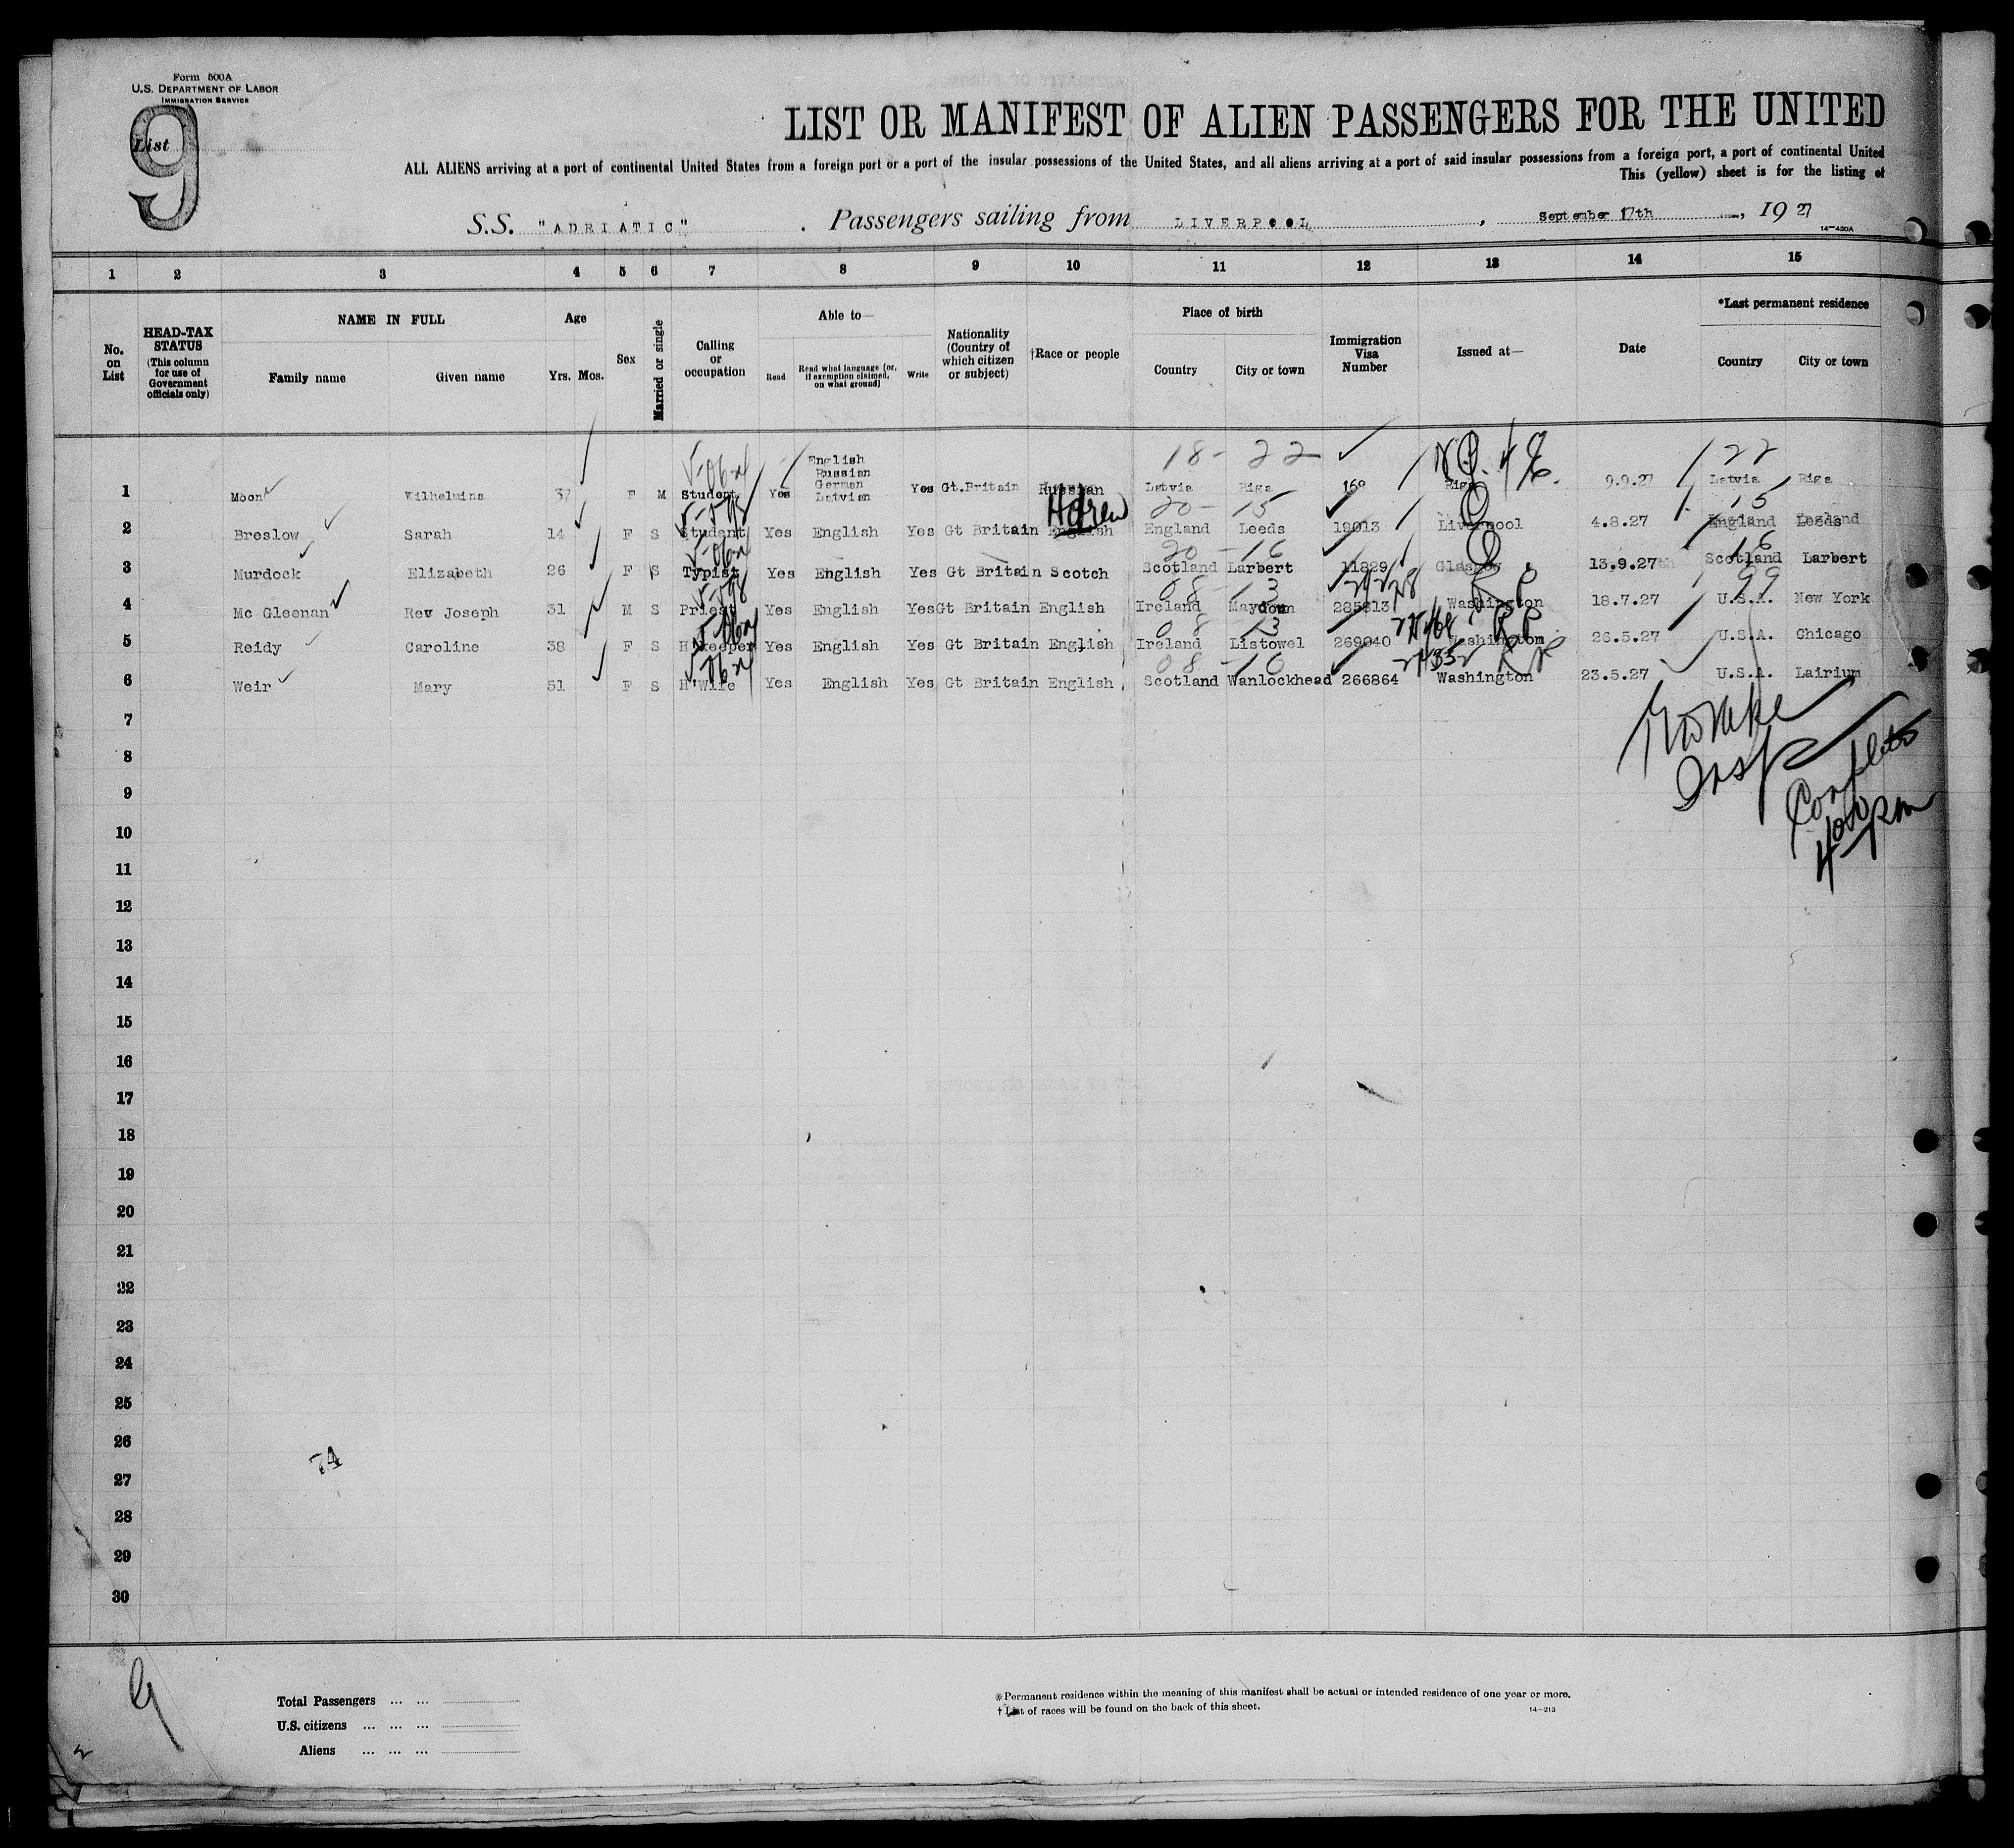 Form 500A
U.S. DEPARTMENT OF LABOR
IMMIGRATION SERVICE
List
9
LIST OR MANIFEST OF ALIEN PASSENGERS FOR THE UNITED
ALL ALIENS arriving at a port of continental United States from a foreign port or a port of the insular possessions of the United States, and all aliens arriving at a port of said insular possessions from a foreign port, a port of continental United
This (yellow) sheet is for the listing of
S.S. "ADRIATIC". Passengers sailing from LIVERPOOL, September 17th, 19 27
14-430A
1 2 3 4 5 6 7 8 9 10 11 12 13 14 15
No. on List
HEAD-TAX STATUS (This column for use of Government officials only)
NAME IN FULL Family name Given name
Age Yrs. Mos.
Sex
Married or single
Calling or occupation
Able to— Read Read what language [or, if exemption claimed, on what ground] Write
Nationality (Country of which citizen or subject)
†Race or people
Place of birth Country City or town
Immigration Visa Number
Issued at—
Date
*Last permanent residence Country City or town
18 - 22 22
1 Moon Wilhelmina 37 F M Student Yes English Russian German Latvian Yes Gt.Britain Russian Latvia Riga 168 Riga 9.9.27 Latvia Riga
Hebrew 20 - 15 Q 15
2 Breslow Sarah 14 F S Student Yes English Yes Gt Britain English England Leeds 19013 Liverpool 4.8.27 England Leeds
20 - 16 Q 16
3 Murdock Elizabeth 26 F S Typist Yes English Yes Gt Britain Scotch Scotland Larbert 11829 Glasgow 13.9.27 Scotland Larbert
08 - 13 RP 99
4 Mc Gleenan Rev Joseph 31 M S Priest Yes English Yes Gt Britain English Ireland Maydown Washington 18.7.27 U.S.A. New York
08 13 RP
5 Reidy Caroline 38 F S H'keeper Yes English Yes Gt Britain English Ireland Listowel 269040 Washington 26.5.27 U.S.A. Chicago
08 - 16 RP
6 Weir Mary 51 F S H'Wife Yes English Yes Gt Britain English Scotland Wanlockhead 266864 Washington 23.5.27 U.S.A. Lairium
7
Insp
8
Complete
9
10
11
12
13
14
15
16
17
18
19
20
21
22
23
24
25
26
74
27
28
29
30
9
Total Passengers ... ...
U.S. citizens ... ... ...
Aliens ... ... ...
*Permanent residence within the meaning of this manifest shall be actual or intended residence of one year or more.
† List of races will be found on the back of this sheet.
14-213